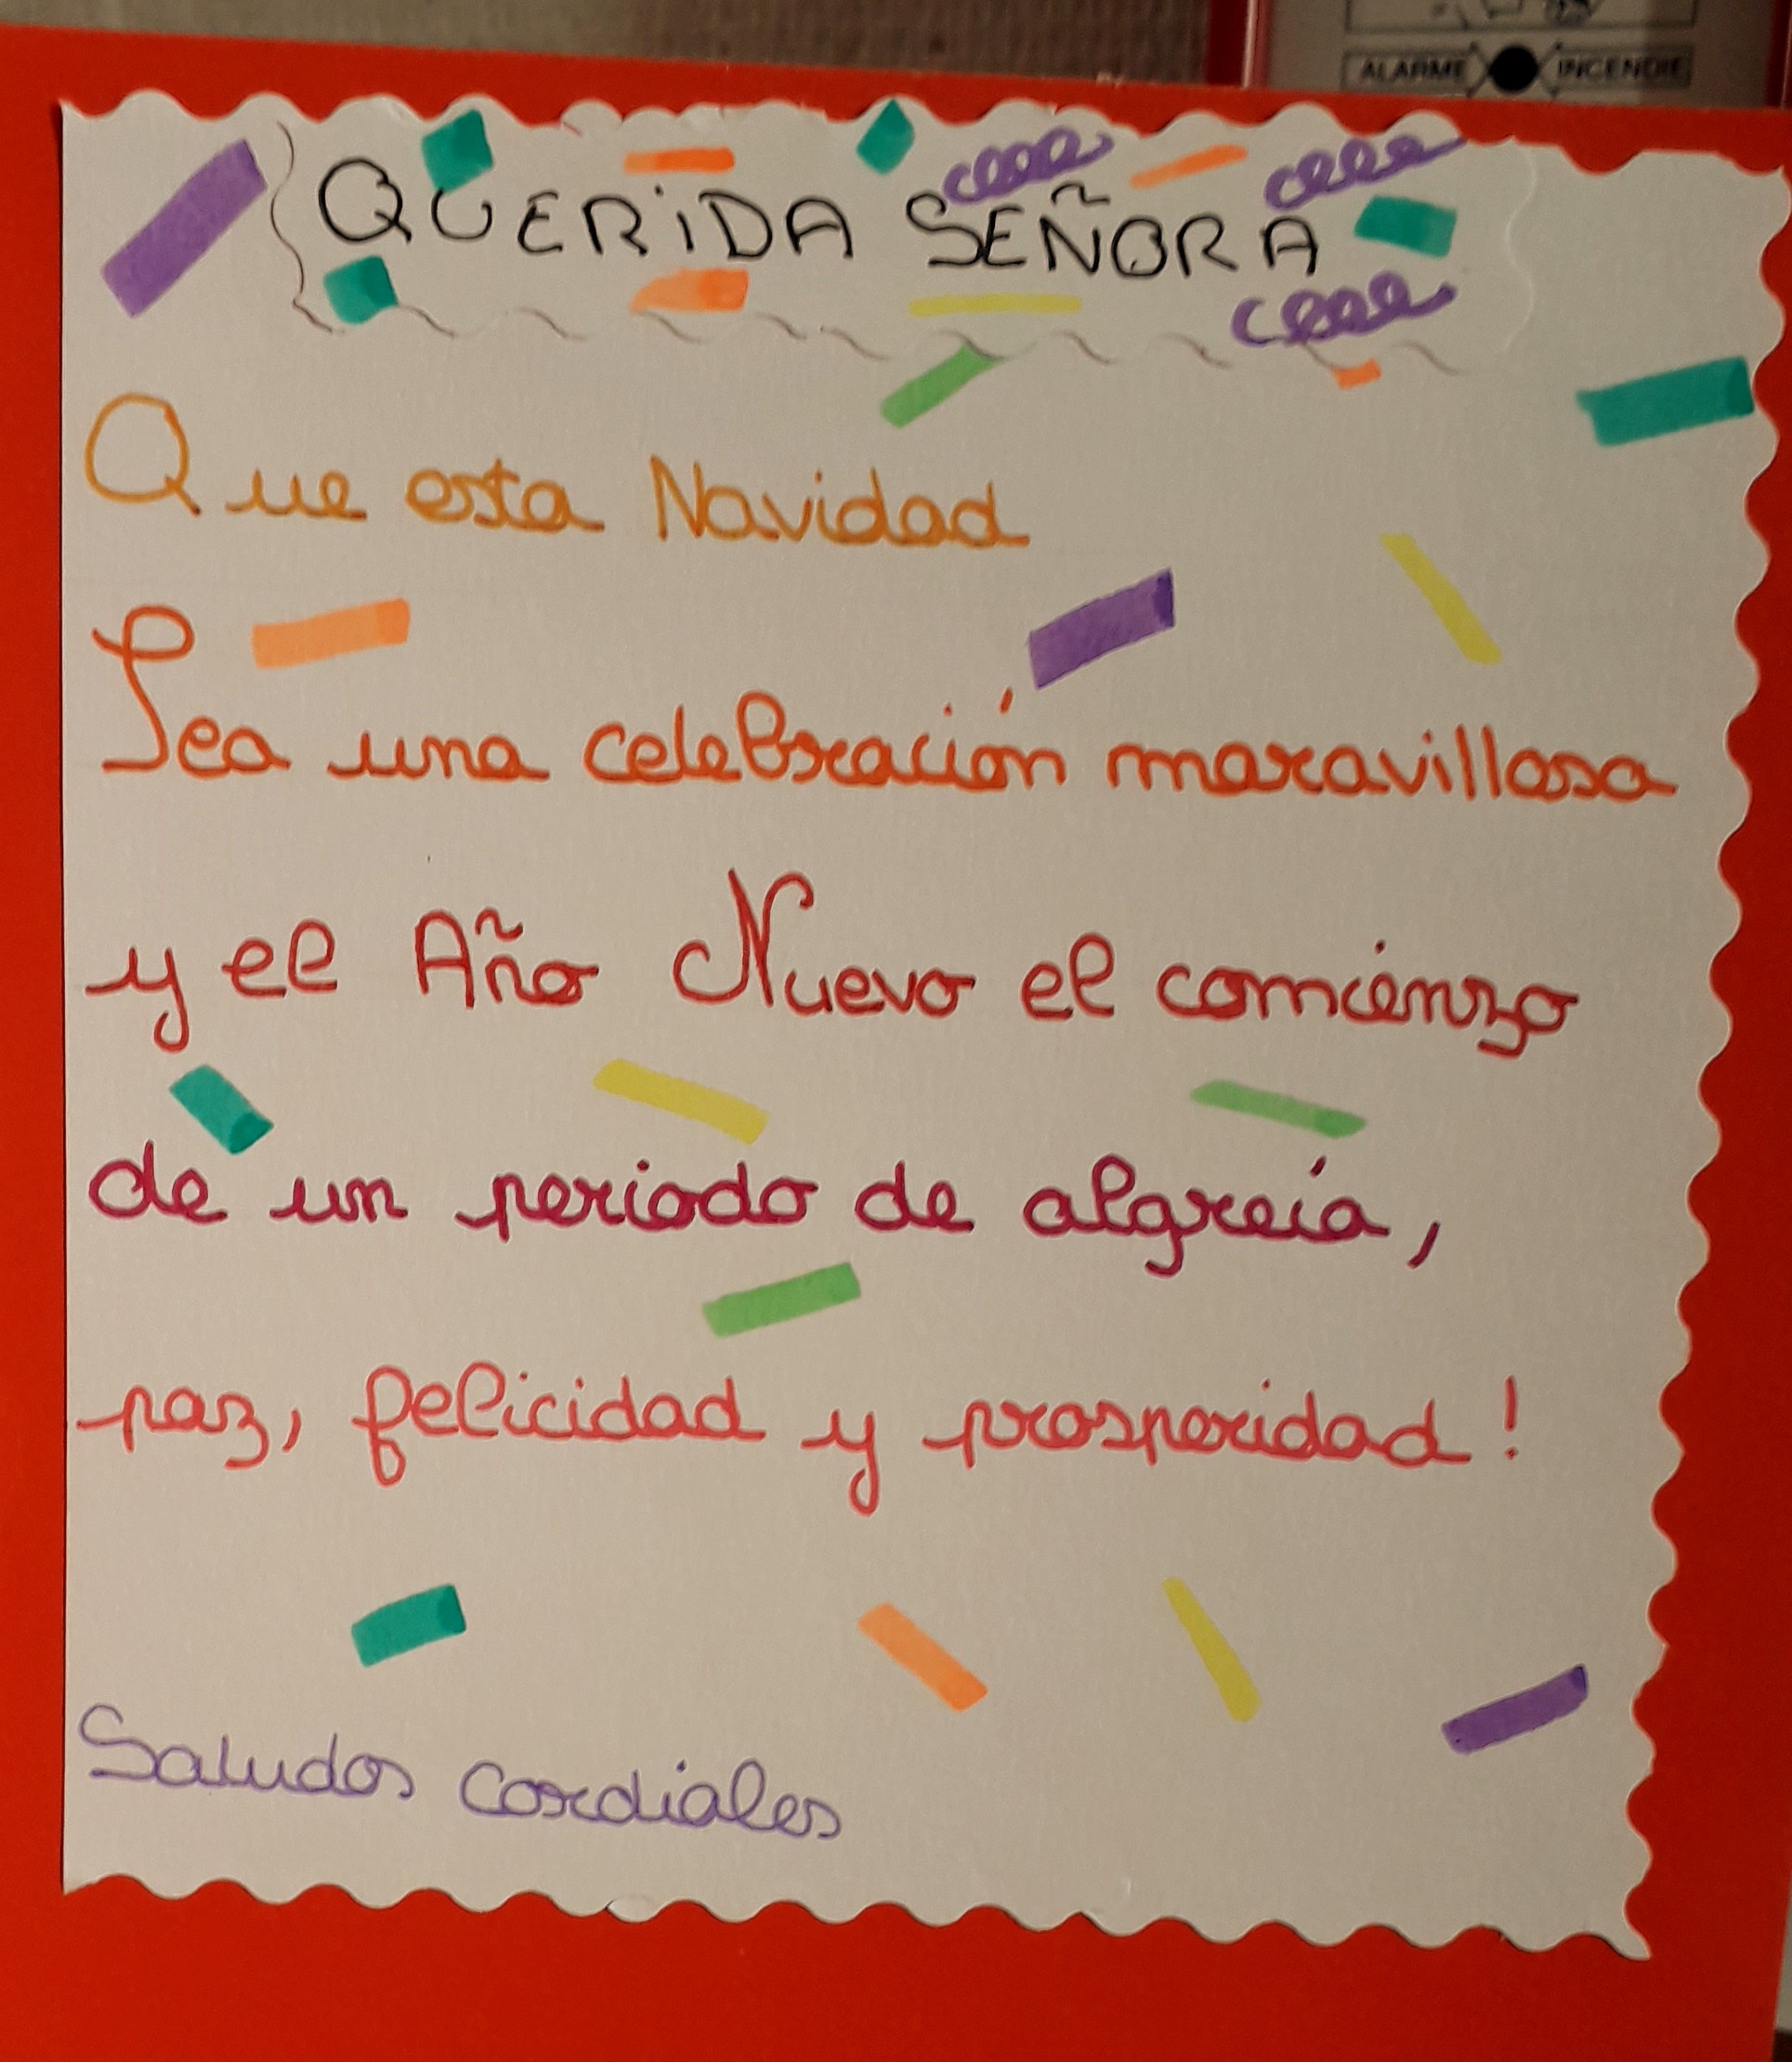 ALARME INCENDIE
QUERIDA SEÑORA
Que esta Navidad
Sea una celebración maravillosa
y el Año Nuevo el comienzo
de un periodo de algreía,
paz, felicidad y prosperidad!
Saludos Cordiales